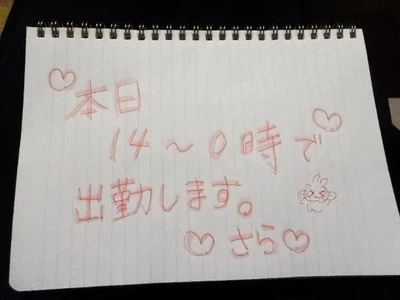 本日
14～0時で
出勤します。
♡さら♡